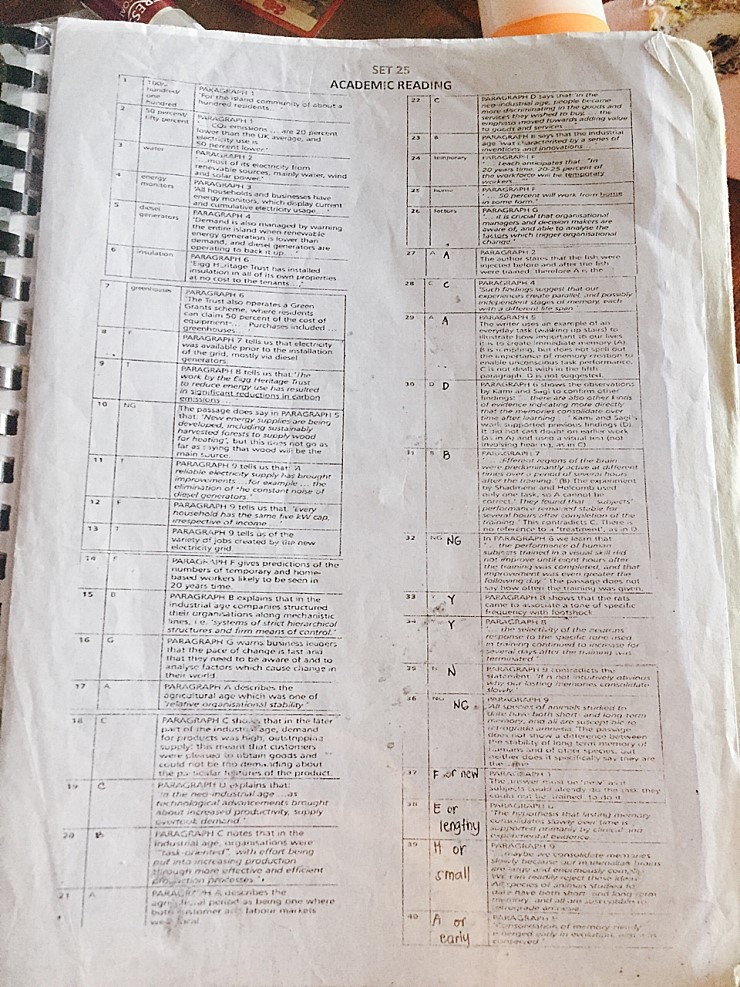 SET 25
ACADEMIC READING
1 100/ PARAGRAPH 1
hundred/ "For the island community of about a
one hundred residents.
hundred
2 50 percent/ PARAGRAPH 1
fifty percent CO₂ emissions ... are 20 percent
lower than the UK average, and
electricity use is
50 percent lower."
3 water PARAGRAPH 2
"...most of its electricity from
renewable sources, mainly water, wind
and solar power."
4 energy PARAGRAPH 3
monitors "All households and businesses have
energy monitors, which display current
and cumulative electricity usage...
5 diesel PARAGRAPH 4
generators "Demand is also managed by warning
the entire island when renewable
energy generation is lower than
demand, and diesel generators are
operating to back it up. ..."
6 insulation PARAGRAPH 6
"Eigg Heritage Trust has installed
insulation in all of its own properties
at no cost to the tenants..."
7 greenhouses PARAGRAPH 6
"The Trust also operates a Green
Grants scheme, where residents
can claim 50 percent of the cost of
equipment... Purchases included ...
greenhouses...
8 F PARAGRAPH 7 tells us that electricity
was available prior to the installation
of the grid, mostly via diesel
generators.
9 T PARAGRAPH 8 tells us that "The
work by the Eigg Heritage Trust
to reduce energy use has resulted
in significant reductions in carbon
emissions
10 NG The passage does say in PARAGRAPH 5
that: "New energy supplies are being
developed, including sustainably
harvested forests to supply wood
for heating", but this does not go as
far as saying that wood will be the
main source.
11 PARAGRAPH 9 tells us that: "A
reliable electricity supply has brought
improvements ... for example ... the
elimination of the constant noise of
diesel generators."
12 F PARAGRAPH 9 tells us that "Every
household has the same five kW cap,
irrespective of income
13 T PARAGRAPH 9 tells us of the
variety of jobs created by the new
electricity grid.
14 F PARAGRAPH F gives predictions of the
numbers of temporary and home-
based workers likely to be seen in
20 years time.
15 B PARAGRAPH B explains that in the
industrial age companies structured
their organisations along mechanistic
lines, i.e. "systems of strict hierarchical
structures and firm means of control."
16 G PARAGRAPH G warns business leaders
that the pace of change is fast and
that they need to be aware of and to
analyse factors which cause change in
their world
17 A PARAGRAPH A describes the
agricultural age which was one of
"relative organisational stability."
18 C PARAGRAPH C shows that in the later
part of the industrial age, demand
for products was high, outstripping
supply: this meant that customers
were pleased to obtain goods and
could not be too demanding about
the particular features of the product.
19 C PARAGRAPH D explains that:
"In the neo-industrial age ... as
technological advancements brought
about increased productivity, supply
overtook demand."
20 B PARAGRAPH C notes that in the
industrial age, organisations were
"Task-oriented", with effort being
put into increasing production
through more effective and efficient
production processes."
21 A PARAGRAPH A describes the
agricultural period as being one where
both customer and labour markets
were local
22 C PARAGRAPH D says that: in the
neo-industrial age, people became
more discriminating in the goods and
services they wished to buy ... the
emphasis moved towards adding value
to goods and services
23 B PARAGRAPH B says that the industrial
age "was characterised by a series of
inventions and innovations
24 temporary PARAGRAPH F
Leach anticipates that "In
20 years time, 20-25 percent of
the workforce will be temporary
workers
25 home PARAGRAPH F
... 50 percent will work from home
in some form."
26 factors PARAGRAPH G
... it is crucial that organisational
managers and decision makers are
aware of, and able to analyse the
factors which trigger organisational
change."
27 A A PARAGRAPH 2
The author states that the fish were
injected before and after the fish
were trained, therefore A is the
28 C C PARAGRAPH 4
"Such findings suggest that our
experiences create parallel, and possibly
independent stages of memory, each
with a different life span
29 A A PARAGRAPH 5
The writer uses an example of an
everyday task (walking up stairs) to
illustrate how important to our lives
it is to create immediate memory (A).
the importance of memory creation to
enable unconscious task performance.
C is not dealt with in the fifth
paragraph. D is not suggested.
30 D D PARAGRAPH 6 shows the observations
by Karni and Sagi to confirm other
findings: "... there are also other kinds
of evidence indicating more directly
that the memories consolidate over
time after learning ..." Karni and Sagi's
work supported previous findings (D).
It did not cast doubt on earlier work
(as in A) and used a visual test (not
involving hearing, as in C)
31 B B PARAGRAPH 7
"...different regions of the brain
were predominantly active at different
times over a period of several hours
after the training." (B) The experiment
by Shadmehr and Holcomb used
only one task, so A cannot be
correct." They found that ... subjects'
performance remained stable for
several hours after completion of the
training." This contradicts C. There is
no reference to a "treatment", as in D
32 NG NG In PARAGRAPH 6 we learn that
"... the performance of human
subjects trained in a visual skill did
not improve until eight hours after
the training was completed, and that
improvement was even greater the
following day." The passage does not
say how often the training was given.
33 Y Y PARAGRAPH 8 shows that the rats
came to associate a tone of specific
frequency with footshock
34 Y Y PARAGRAPH 8
"... the selectivity of the neurons
response to the specific tone used
in training continued to increase for
several days after the training was
terminated
35 N N PARAGRAPH 9 contradicts the
statement: "It is not intuitively obvious
why our lasting memories consolidate
slowly."
36 NG NG PARAGRAPH 9
"All species of animals studied to
date have both short- and long-term
memory, and all are susceptible to
retrograde amnesia." The passage
does not show a difference between
the stability of long term memory of
humans and of other species, but
neither does it specifically say they are
the
37 F or new PARAGRAPH
subjects could already do the task they
could not be trained to do it
38 E or lengthy PARAGRAPH 6
"The hypothesis that lasting memory
consolidates slowly over time is
supported primarily by clinical and
experimental evidence
39 H or small PARAGRAPH 9
... maybe we consolidate memories
slowly because our mammalian brains
are large and enormously complex.
We can readily reject these ideas.
All species of animals studied to
date have both short- and long-term
memory, and all are susceptible to
retrograde amnesia
40 A or early PARAGRAPH
"Consolidation of memory
emerged early in evolution,
conserved